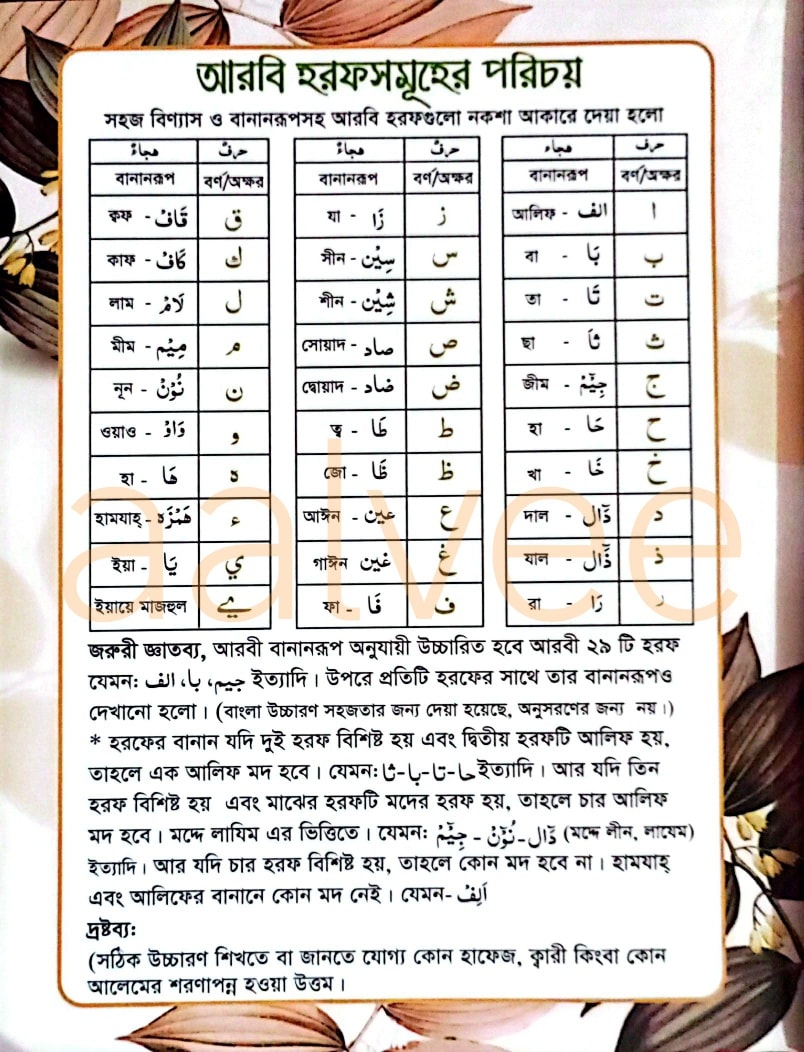 আরবি হরফসমূহের পরিচয়
সহজ বিণ্যাস ও বানানরূপসহ আরবি হরফগুলো নকশা আকারে দেয়া হলো
هجاء حرف هجاء حرف هجاء حرف
বানানরূপ বর্ণ/অক্ষর বানানরূপ বর্ণ/অক্ষর বানানরূপ বর্ণ/অক্ষর
ক্বফ - قَافْ ق যা - زَا ز আলিফ - الف ا
কাফ - كَافْ ك সীন - سِيْن س বা - بَا ب
লাম - لَامْ ل শীন - شِيْن ش তা - تَا ت
মীম - مِيْم م সোয়াদ - صاد ص ছা - ثَا ث
নূন - نُوْنْ ن দ্বোয়াদ - ضاد ض জীম - جِيْمْ ج
ওয়াও - وَاوْ و ত্ব - طَا ط হা - حَا ح
হা - هَا ه জো - ظَا ظ খা - خَا خ
হামযাহ্ - هَمْزَه ء আঈন - عين ع দাল - دَالْ د
ইয়া - يَا ي গাঈন غين غ যাল - ذَالْ ذ
ইয়ায়ে মাজহুল ے ফা - فَا ف রা - رَا ر
জরুরী জ্ঞাতব্য, আরবী বানানরূপ অনুযায়ী উচ্চারিত হবে আরবী ২৯ টি হরফ
যেমন: جيم، با، الف ইত্যাদি। উপরে প্রতিটি হরফের সাথে তার বানানরূপও
দেখানো হলো। (বাংলা উচ্চারণ সহজতার জন্য দেয়া হয়েছে, অনুসরণের জন্য নয়।)
* হরফের বানান যদি দুই হরফ বিশিষ্ট হয় এবং দ্বিতীয় হরফটি আলিফ হয়,
তাহলে এক আলিফ মদ হবে। যেমন: حا-تا-با-ثا ইত্যাদি। আর যদি তিন
হরফ বিশিষ্ট হয় এবং মাঝের হরফটি মদের হরফ হয়, তাহলে চার আলিফ
মদ হবে। মদ্দে লাযিম এর ভিত্তিতে। যেমন: دَالْ-نُوْنْ-جِيْمْ (মদ্দে লীন, লাযেম)
ইত্যাদি। আর যদি চার হরফ বিশিষ্ট হয়, তাহলে কোন মদ হবে না। হামযাহ্
এবং আলিফের বানানে কোন মদ নেই। যেমন- اَلِفْ
দ্রষ্টব্য:
(সঠিক উচ্চারণ শিখতে বা জানতে যোগ্য কোন হাফেজ, ক্বারী কিংবা কোন
আলেমের শরণাপন্ন হওয়া উত্তম।
aalvee